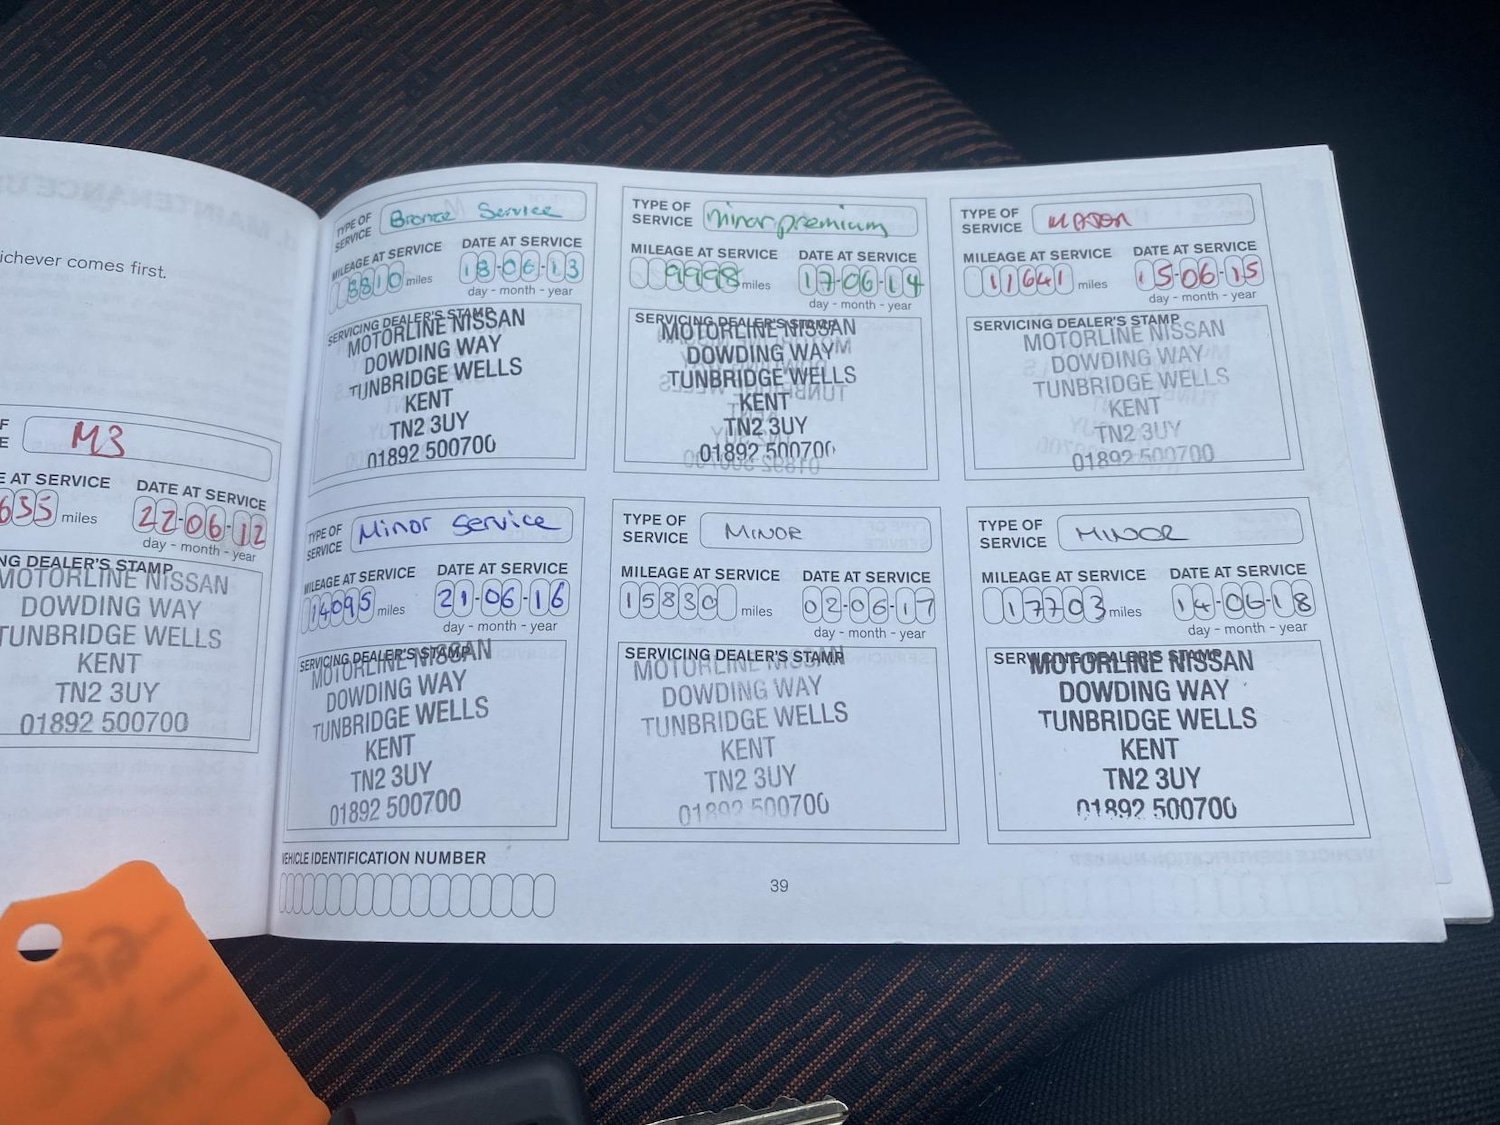 ichever comes first.
F
E
M3
E AT SERVICE
DATE AT SERVICE
655 miles
22-06-12
day - month - year
NG DEALER'S STAMP
MOTORLINE NISSAN
DOWDING WAY
TUNBRIDGE WELLS
KENT
TN2 3UY
01892 500700
TYPE OF
SERVICE
Bronze Service
MILEAGE AT SERVICE
DATE AT SERVICE
8810 miles
18-06-13
day - month - year
SERVICING DEALER'S STAMP
MOTORLINE NISSAN
DOWDING WAY
TUNBRIDGE WELLS
KENT
TN2 3UY
01892 500700
TYPE OF
SERVICE
Minor premium
MILEAGE AT SERVICE
DATE AT SERVICE
9998 miles
17-06-14
day - month - year
SERVICING DEALER'S STAMP
MOTORLINE NISSAN
DOWDING WAY
TUNBRIDGE WELLS
KENT
TN2 3UY
01892 500700
TYPE OF
SERVICE
MAJOR
MILEAGE AT SERVICE
DATE AT SERVICE
11641 miles
15-06-15
day - month - year
SERVICING DEALER'S STAMP
MOTORLINE NISSAN
DOWDING WAY
TUNBRIDGE WELLS
KENT
TN2 3UY
01892 500700
TYPE OF
SERVICE
Minor Service
MILEAGE AT SERVICE
DATE AT SERVICE
14095 miles
21-06-16
day - month - year
SERVICING DEALER'S STAMP
MOTORLINE NISSAN
DOWDING WAY
TUNBRIDGE WELLS
KENT
TN2 3UY
01892 500700
TYPE OF
SERVICE
MINOR
MILEAGE AT SERVICE
DATE AT SERVICE
15830 miles
02-06-17
day - month - year
SERVICING DEALER'S STAMP
MOTORLINE NISSAN
DOWDING WAY
TUNBRIDGE WELLS
KENT
TN2 3UY
01892 500700
TYPE OF
SERVICE
MINOR
MILEAGE AT SERVICE
DATE AT SERVICE
17703 miles
14-06-18
day - month - year
SERVICING DEALER'S STAMP
MOTORLINE NISSAN
DOWDING WAY
TUNBRIDGE WELLS
KENT
TN2 3UY
01892 500700
VEHICLE IDENTIFICATION NUMBER
39